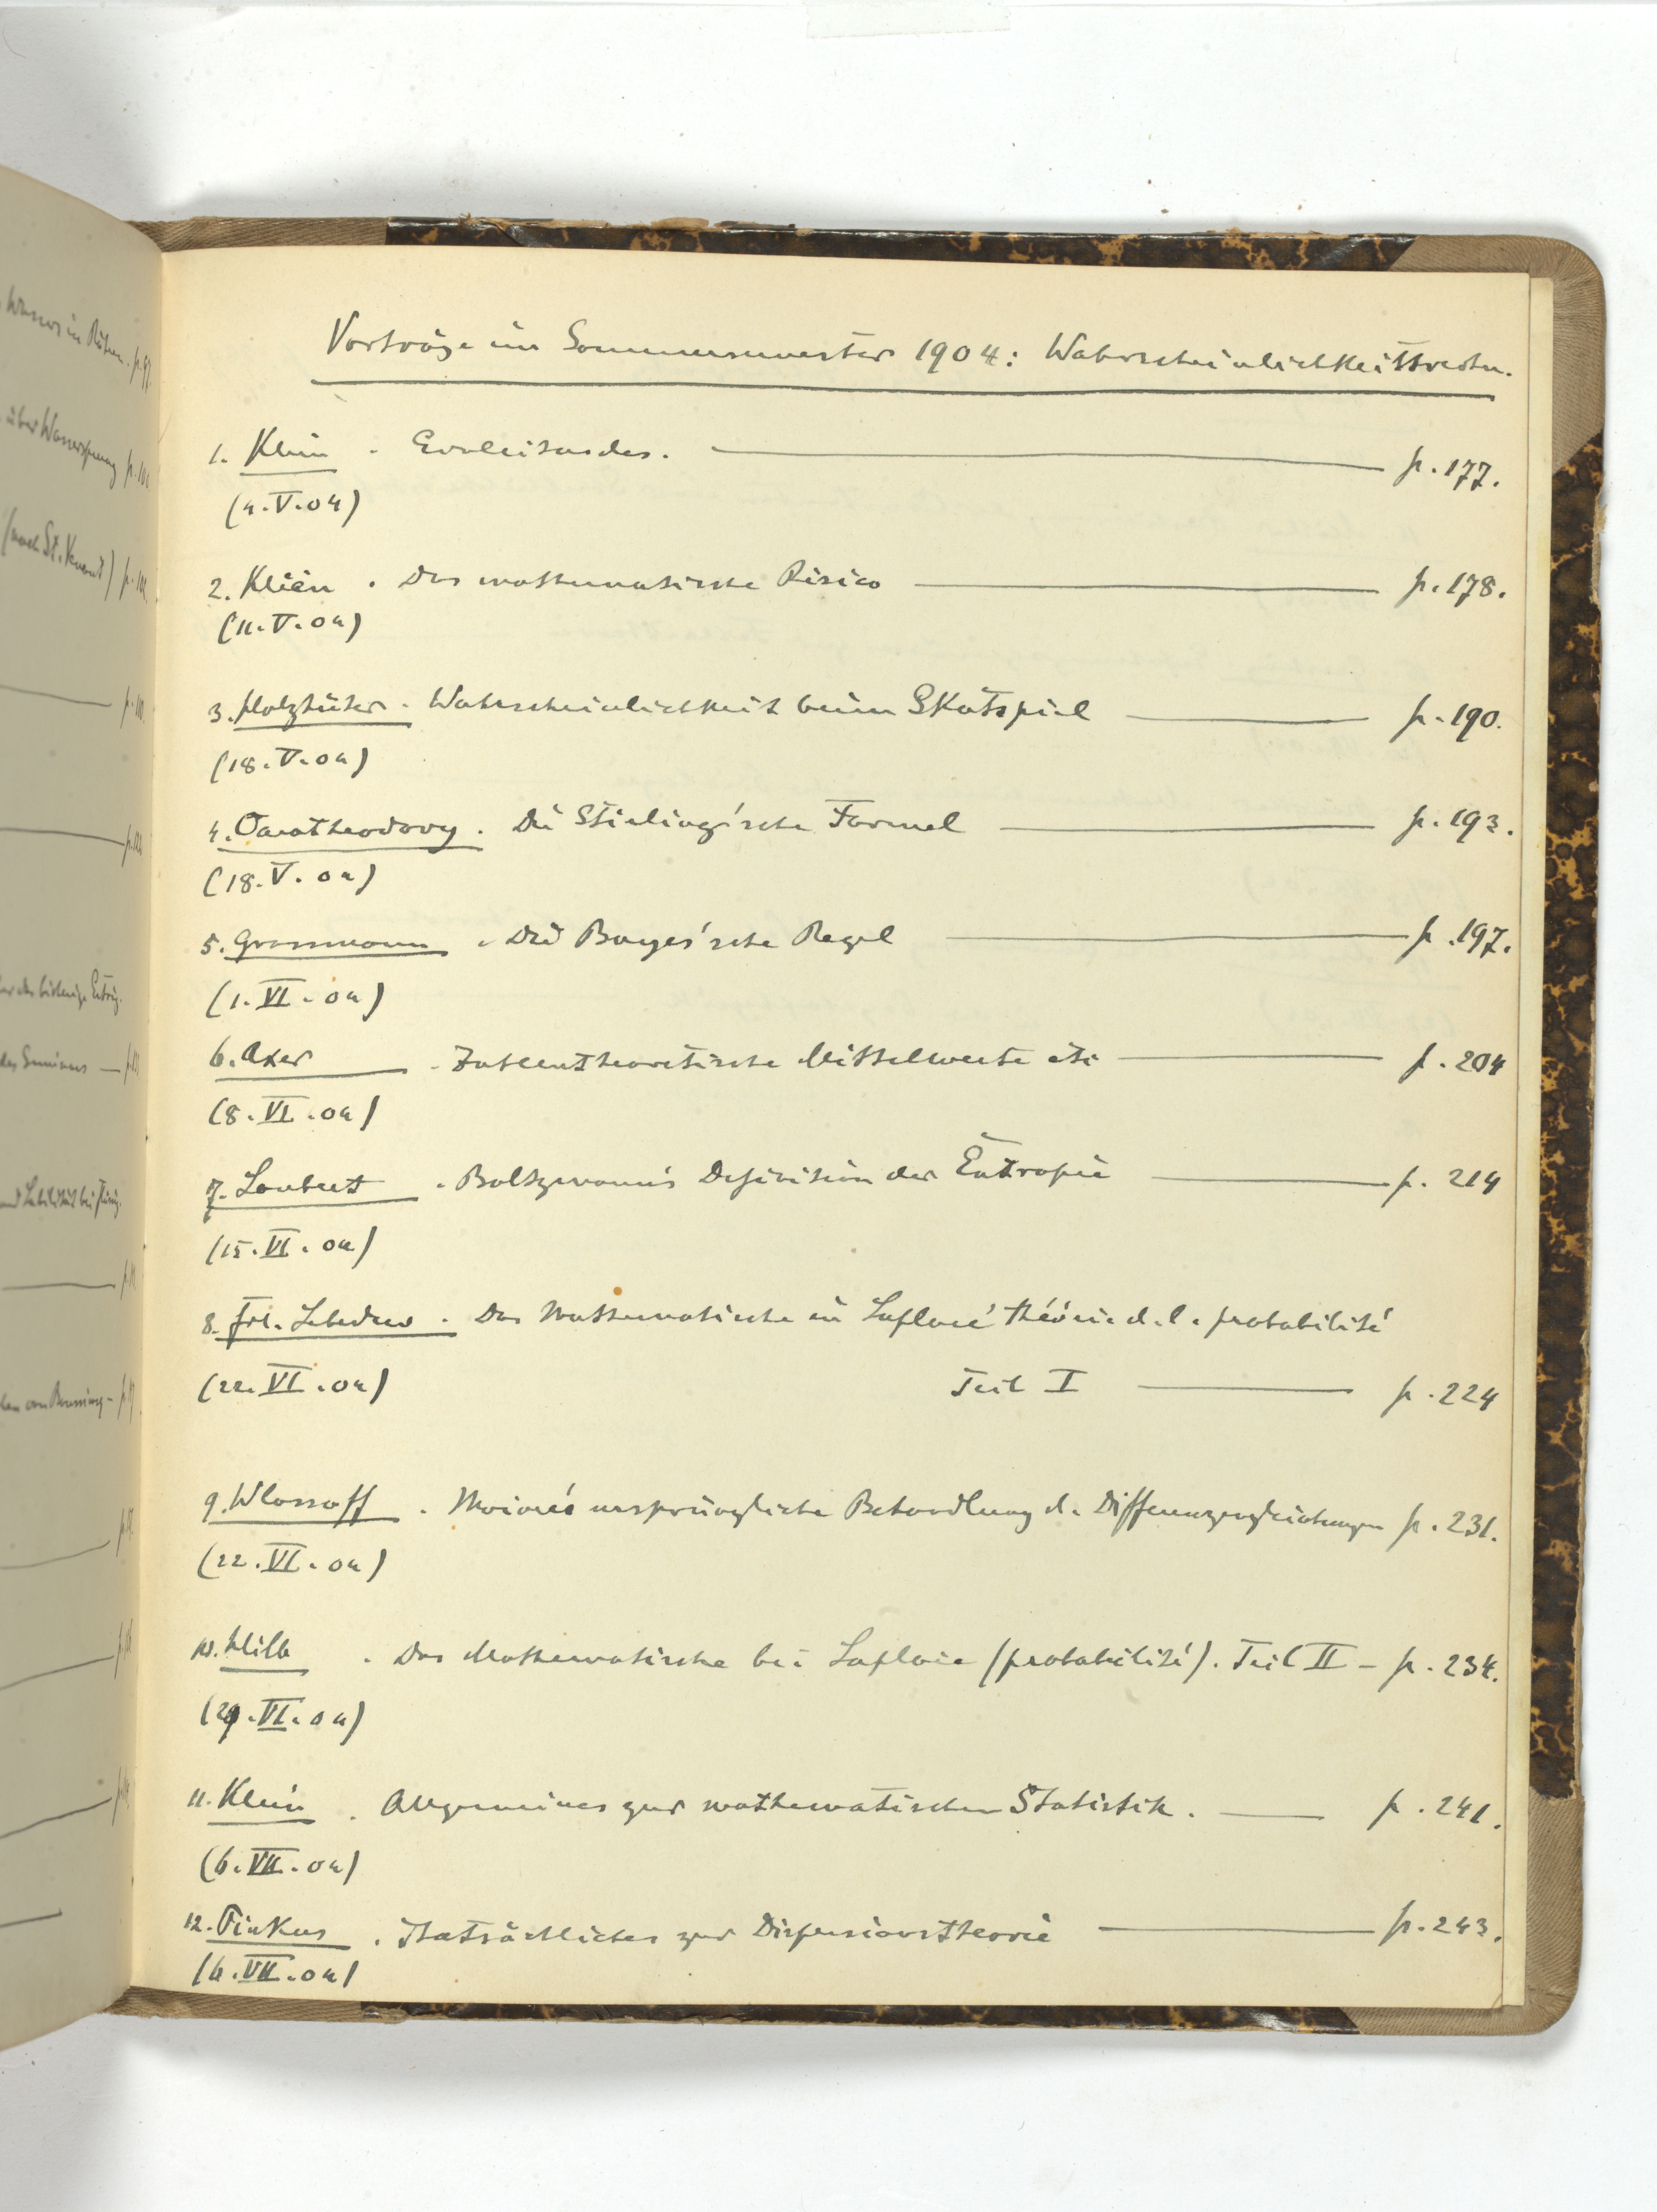 Wasser in Röhren. p. 97
über Wassersprung p. 101
(nach St. Venant) p.
p.
p.
des Seminars — p.
Vorträge im Sommersemester 1904: Wahrscheinlichkeitsrechn.
1. Klein . Einleitendes. p. 177.
(4.V.04)
2. Klein . Das mathematische Risico p. 178.
(11.V.04)
3. Holzhüter . Wahrscheinlichkeit beim Skatspiel p. 190.
(18.V.04)
4. Caratheodory . Die Stirling'sche Formel p. 193.
(18.V.04)
5. Grossmann . Die Bayes'sche Regel p. 197.
(1.VI.04)
6. Axer . Zahlentheoretische Mittelwerte etc p. 204
(8.VI.04)
7. Laubert . Boltzmann's Definition der Entropie p. 214
(15.VI.04)
8. Frl. Lebedew . Das Mathematische in Laplace' théorie d. l. probabilité
(22.VI.04) Teil I p. 224
9. Wlassoff . Moivre's ursprüngliche Behandlung d. Differenzengleichungen p. 231.
(22.VI.04)
10. Hilb . Das Mathematische bei Laplace (probabilité). Teil II – p. 234.
(29.VI.04)
11. Klein . Allgemeines zur mathematischen Statistik. p. 241.
(6.VII.04)
12. Pinkus . Thatsächliches zur Dispersionstheorie p. 243.
(6.VII.04)